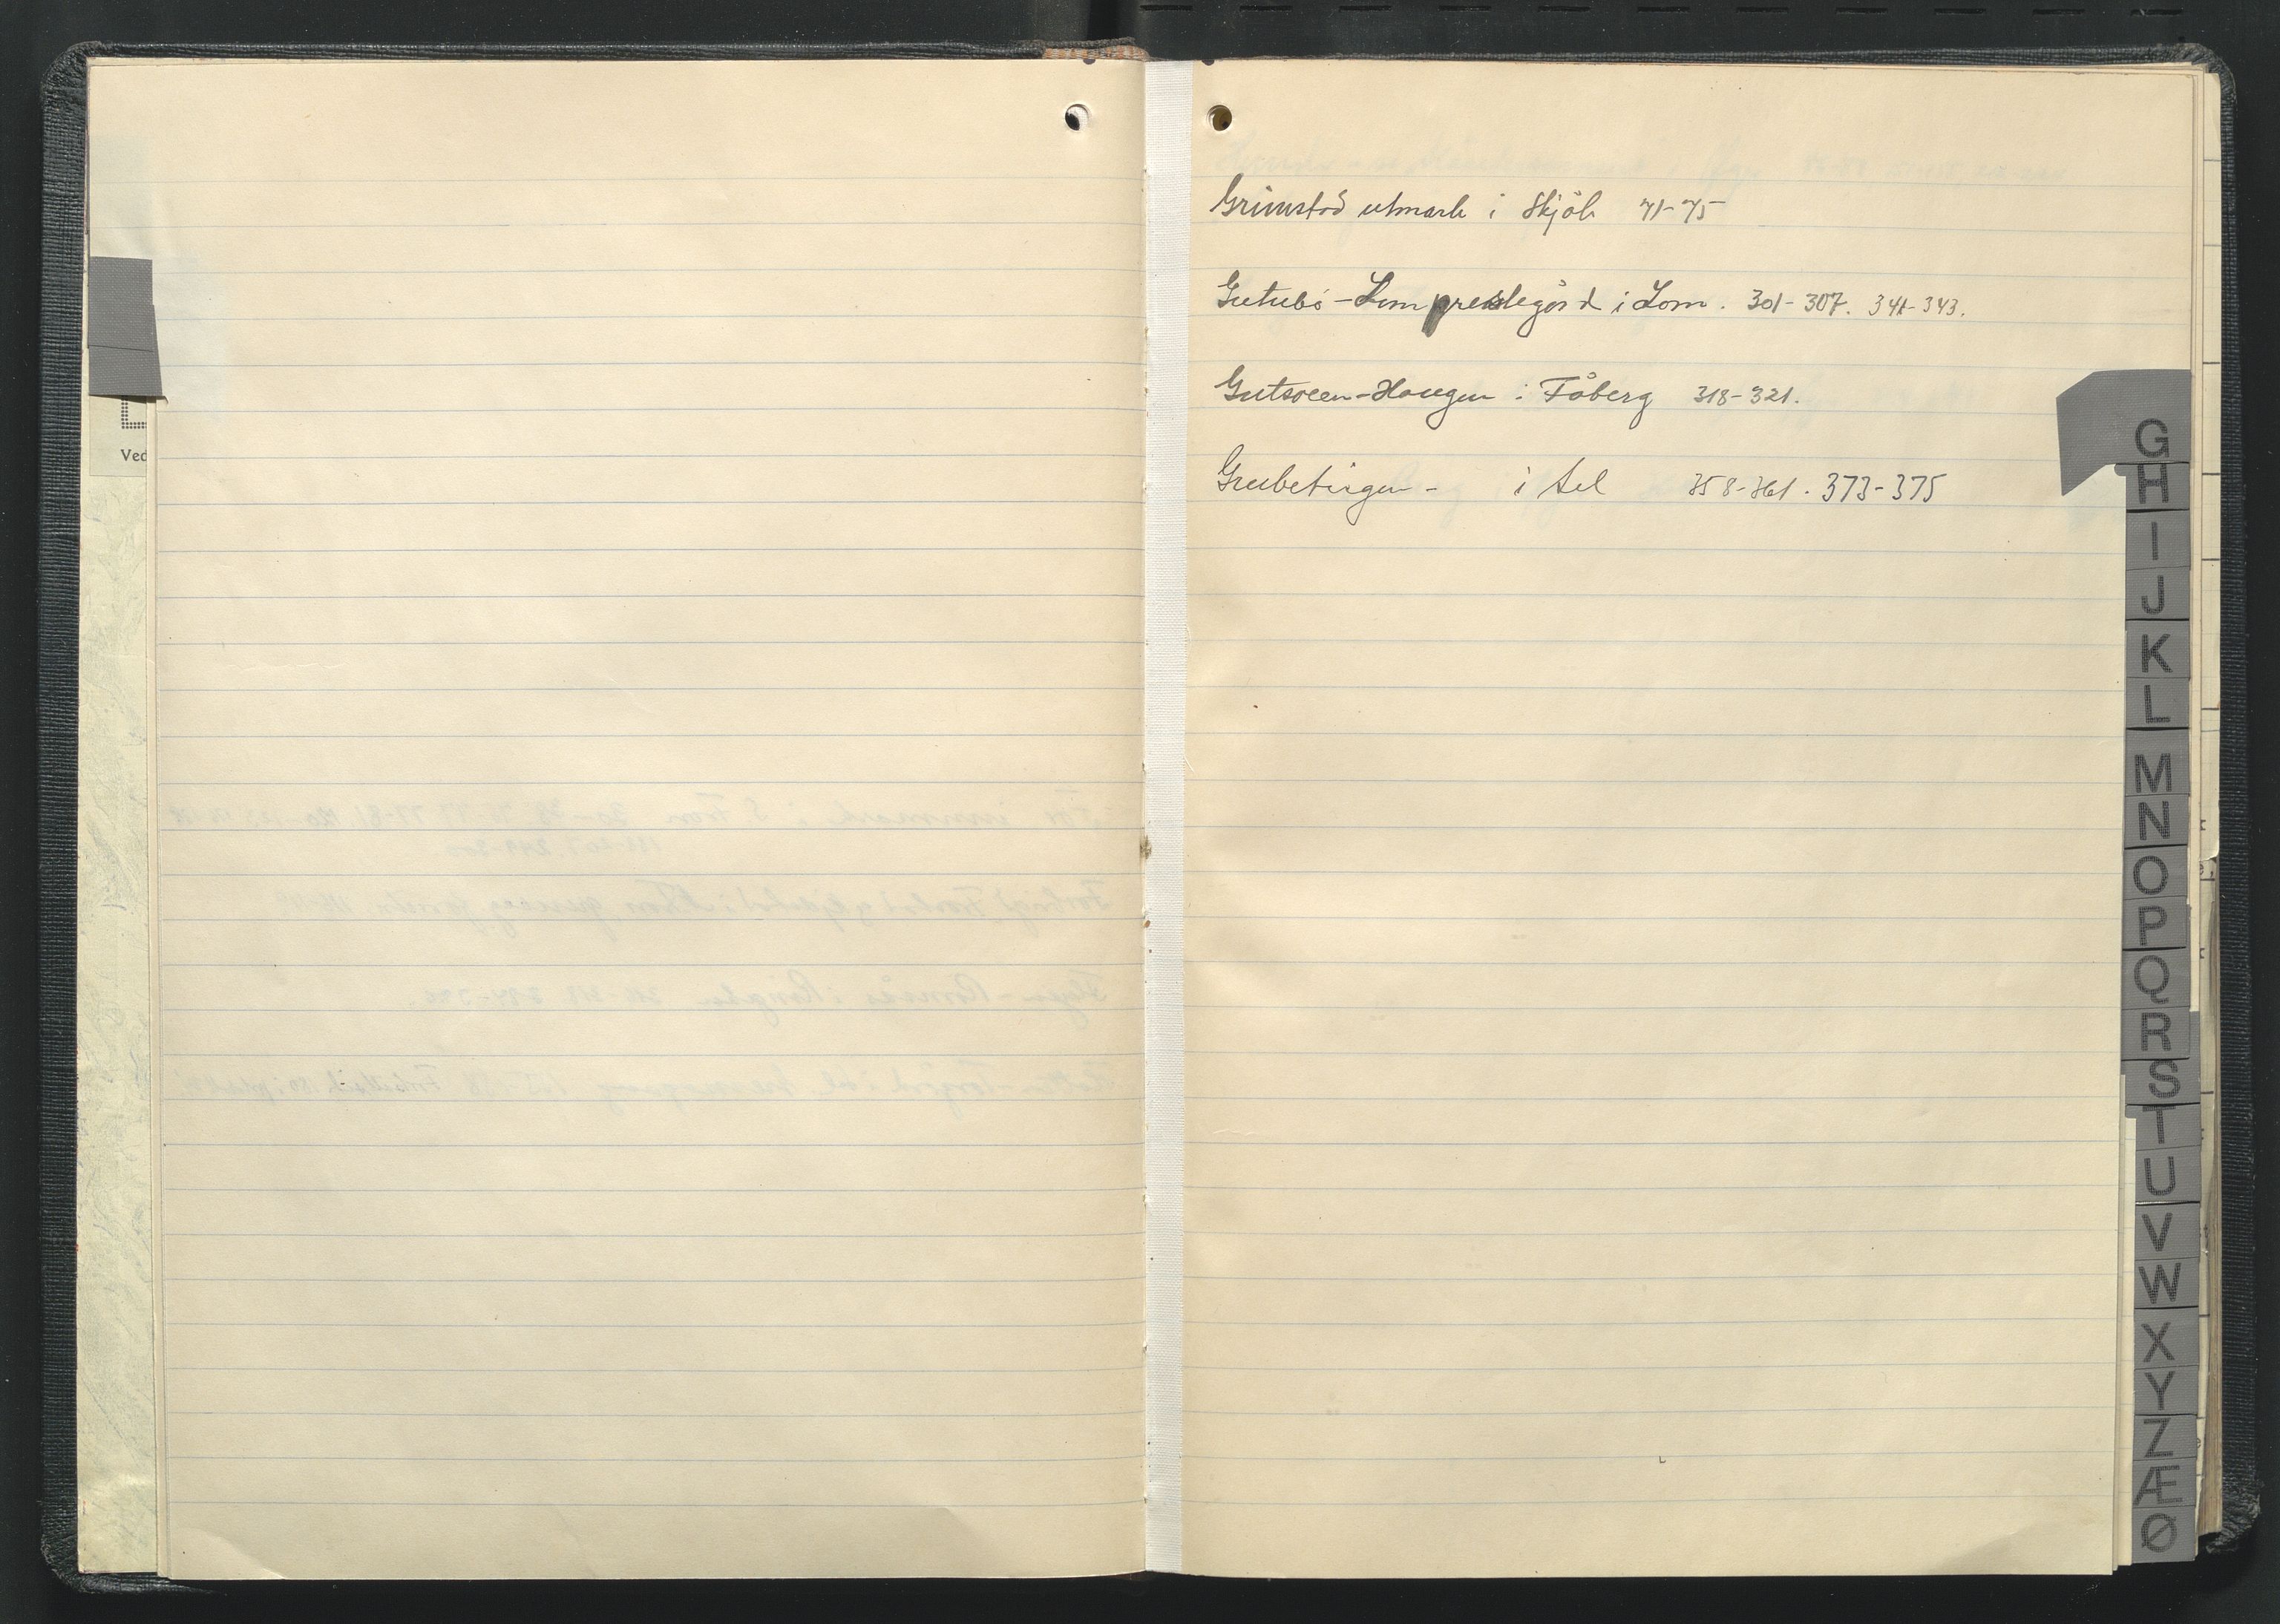 Ved
Grimstad utmark i Skjåk 71-75
Gutubø - Lom prestegård i Lom. 301-307. 341-343.
Gutsveen - Haugen i Fåberg 318-321.
Grubetingen - i Sel 358-361. 373-375
G
H
I
J
K
L
M
N
O
P
Q
R
S
T
U
V
W
X
Y
Z
Æ
Ø